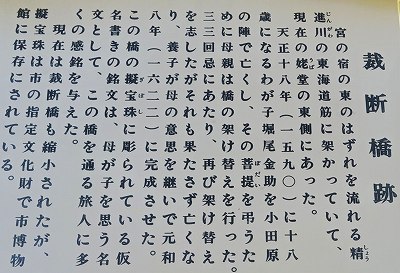 裁断橋跡
宮の宿の東のはずれを流れる精
しょう
進川の東海道筋に架かっていて、
じんがわ
現在の姥堂の東側にあった。
天正十八年（一五九〇）に十八
歳になるわが子堀尾金助を小田原
の陣で亡くし、その菩提を弔うた
ぼだい
めに母親は橋の架け替えを行った。
三三回忌にあたり、再び架け替え
を志したがそれも果たさず亡くな
り、養子が母の意思を継いで元和
八年（一六二二）に完成させた。
この橋の擬宝珠に彫られている仮
ぎぼし
名書きの銘文は、母が子を思う名
文として、この橋を通る旅人に多
くの感銘を与えた。
現在は裁断橋も縮小されたが、
擬宝珠は市の指定文化財で市博物
館に保存にされている。